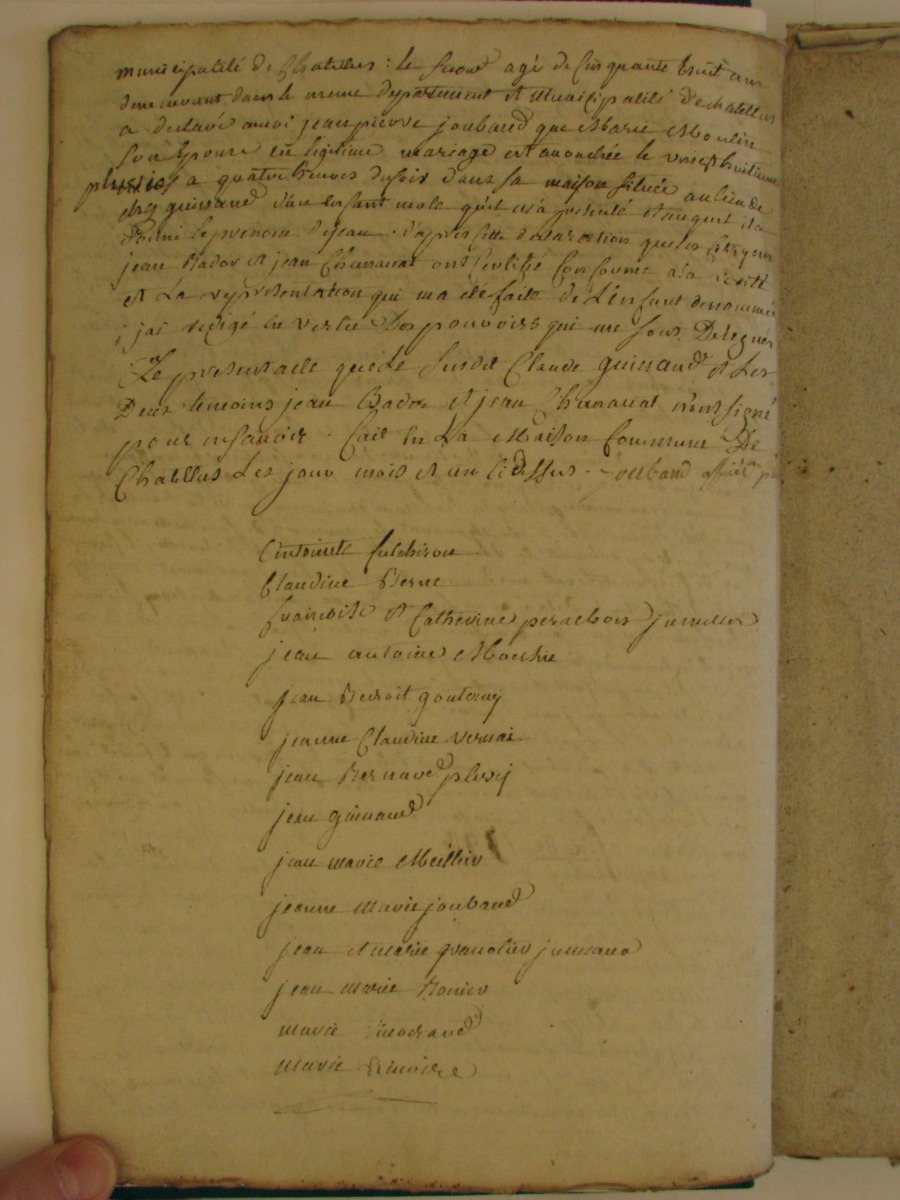 municipalité de Chatelus : le second agé de Cinquante huit ans
demeurant dans le meme departement et municipalité de chatellus
a declaré amoi jean pierre joubaud que Marie Moulin
Son Epouse en legitime mariage est acouchée le
pluviose a quatre heures du soir dans sa maison située au lieu de
ches guinaud d'un enfant male qu'il m'a presenté et auquel il a
donné le prenom de jean . d'apres cette declaration que les Citoyens
jean Bador et jean Chanavat ont Certifié Conforme a la verité
et La representation qui ma été faite de L'enfant denommé
; jai redigé en vertu Des pouvoirs qui me sont Delegués
Le present acte que Le Susdit Claude guinaud et Les
Deux temoins jean Bador et jean Chanavat n'ont signé
pour ne savoir . fait En La Maison Commune De
Chatellus Les jour mois et an Cidessus . joubaud officié
fulchiron
Claudine Berne
francoise et Catherine jumelles
jean antoine
jean Benoit goutenoy
jeanne Claudine vernai
jean Bernard plesy
jean guinaud
jean marie Meillier
jeanne Marie joubaud
jean et marie granolier jumeaux
jean Marie Bonier
marie
marie